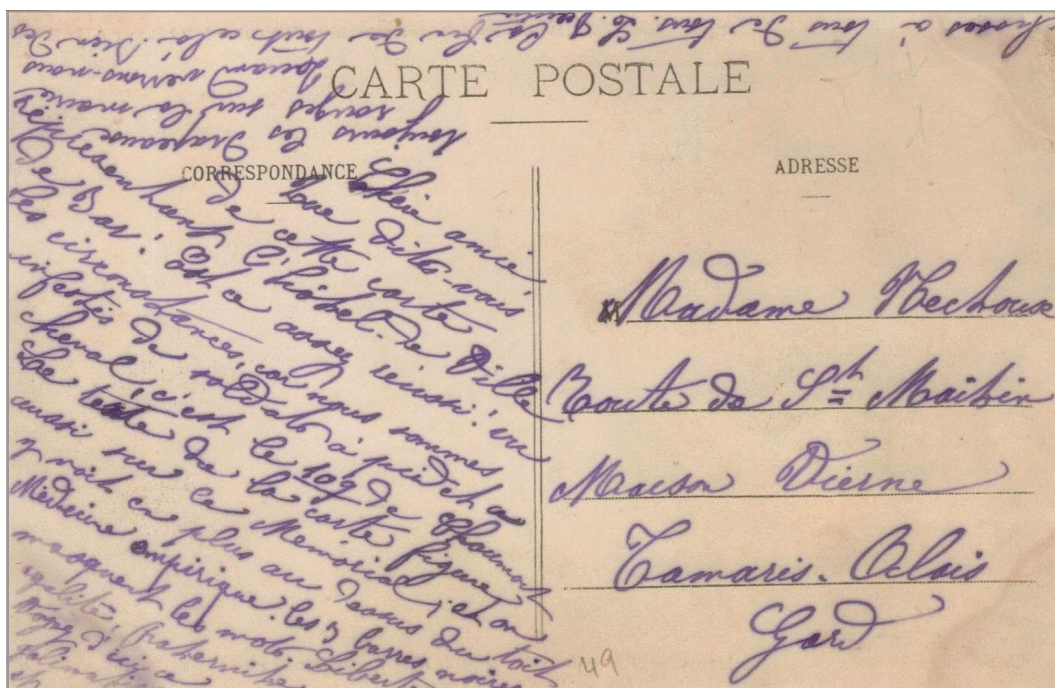 CARTE POSTALE
CORRESPONDANCE
ADRESSE
Chère amie
dites-vous
de cette carte
représentant l'hôtel-de-Ville
de Bar? Est-ce assez réussi? vu
les circonstances, car nous sommes
infestés de soldats à pied et à
cheval, c'est le 109 de Chaumont
Le texte de la carte figure
aussi sur le Mémorial, et on
y voit en plus au dessus du toit
Médecine empirique les barres noires
masquent le mot Liberté
égalité, fraternité
toujours les Drapeaux
rouges sur la mairie
quand verrons-nous
la fin de tout cela. Bien des
choses à tous de tous.
Madame Nechoux
Route de St Maitier
Maison Dierne
Tamaris. Alais
Gard
49